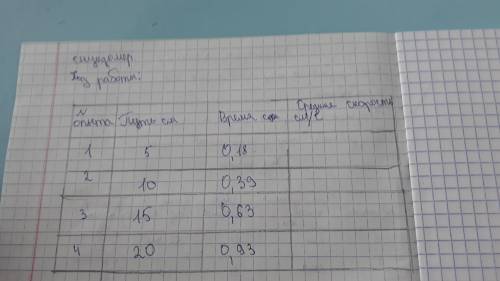 секундомер.
Ход работы:
N опыта Путь см Время сек Средняя скорость см/с
1 5 0,18
2 10 0,39
3 15 0,63
4 20 0,93